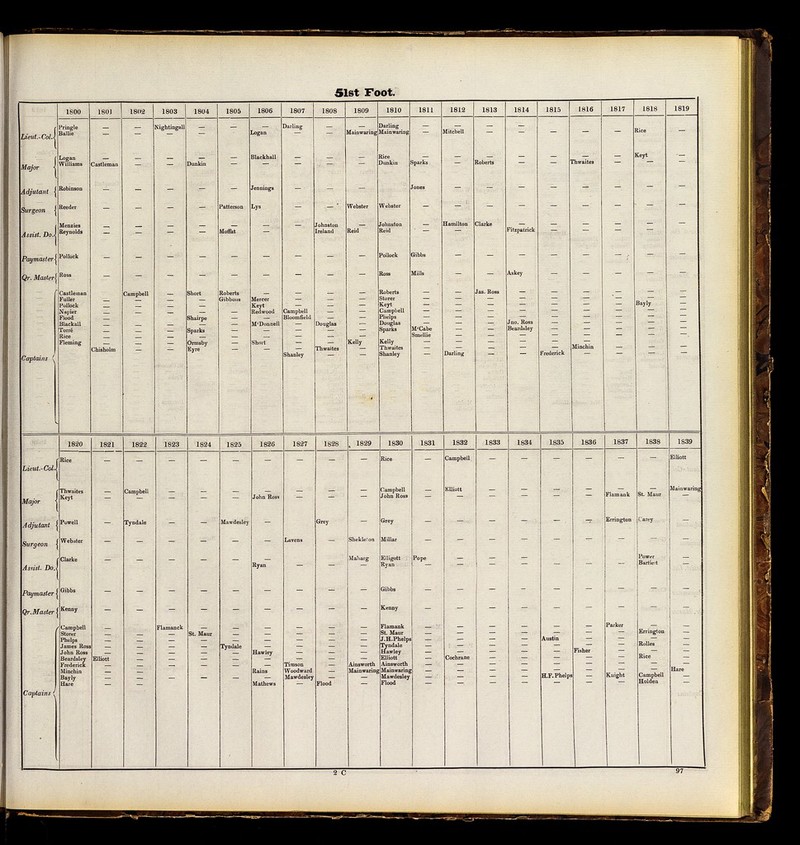 51st Foot.
1800 1801 1802 1803 1804 1805 1806 1807 1808 1809 1810 1811 1812 1813 1814 1815 1816 1817 1818 1819
Lieut.-Col. Pringle — — Nightingall — — — Darling — — Darling — — — —
Ballie — — — Logan — — Mainwaring Mainwaring — Mitchell — — — — — Rice —
Major Logan — — — — — Blackhall — — — Rice — — — — — — — Keyt —
Williams Castleman — — Dunkin — — — — — Dunkin Sparks — Roberts — — Thwaites — — —
Adjutant Robinson — — — — — Jennings — — — Jones — — — — — — — —
Surgeon Reeder — — — — Patterson Lys — — Webster Webster — — — — — — — — —
Assist. Do. Menzies — — — — — — — Johnston — Johnston — Hamilton Clarke — — — — — —
Reynolds — — — — Moffat — — Ireland Reid Reid — — Fitzpatrick — — — — —
Paymaster Pollock — — — — — — — — — Pollock Gibbs — — — — — — — —
Qr. Master Ross — — — — — — — — — Ross Mills — — Askey — — — — —
Captains Castleman — Campbell — Short Roberts — — — — Roberts — — Jas. Ross — — — — — —
Fuller — — — — Gibbons Mercer — — — Storer — — — — — — — — —
Pollock — — — — — Keyt — — — Keyt — — — — — — — Bayly —
Napier — — — — — Redwood Campbell — — Campbell — — — — — — — — —
Flood — — — Shairpe — — Bloomfield — — Phelps — — — — — — — — —
Blackall — — — — — M'Donnell — Douglas — Douglas — — — Jno. Ross — — — — —
Terod — — — Sparks — — — — — Sparks M'Cabe — — Beardsley — — — — —
Rice — — — — — — — — — Smellie — — — — — — — —
Fleming — — — Ormsby — Short — — Kelly Kelly — — — — — — — — —
Chisholm — — Eyre — — — Thwaites — Thwaites — — — — — Minchin — — —
Shanley — — Shanley — Darling — — Frederick — — — —
1820 1821 1822 1823 1824 1825 1826 1827 1828 1829 1830 1831 1832 1833 1834 1835 1836 1837 1838 1839
Lieut.-Col. Rice — — — — — — — — — Rice — Campbell — — — — — — Elliott
Major Thwaites — Campbell — — — — — — — Campbell — Elliott — — — — — — Mainwaring
Keyt — — — — — John Ross — — — John Ross — — — — — — Flamank St. Maur —
Adjutant Powell — Tyndale — — Mawdesley — — Grey — Grey — — — — — — Errington Carey —
Surgeon Webster — — — — — — Lavens — Shekleton Millar — — — — — — — — —
Assist. Do. Clarke — — — — — — Maharg Elligott Pope — — — — — — Power —
Ryan — — — Ryan — — — — — — — Bartlett —
Paymaster Gibbs — — — — — — — — — Gibbs — — — — — — — — —
Qr. Master Kenny — — — — — — — — — Kenny — — — — — — — — —
Captains Campbell — — Flamanck — — — — — — Flamank — — — — — — Parker — —
Storer — — — St. Maur — — — — — St. Maur — — — — — — — Errington —
Phelps — — — — — — — — — J.H. Phelps — — — — Austin — — — —
James Ross — — — — Tyndale — — — — Tyndale — — — — — — — Rolles —
John Ross — — — — — Hawley — — — Hawley — — — — — Fisher — — —
Beardsley Elliott — — — — — — — — Elliott — Cochrane — — — — — Rice —
Frederick — — — — — — Timson — Ainsworth Ainsworth — — — — — — — — —
Minchin — — — — — Rains Woodward — Mainwaring Mainwaring — — — — — — — — Hare
Bayly — — — — — — Mawdesley — — Mawdesley — — — — H.F. Phelps — Knight Campbell —
Hare — — — — — Mathews — Flood — Flood — — — — — — — Holden —
2 C
97